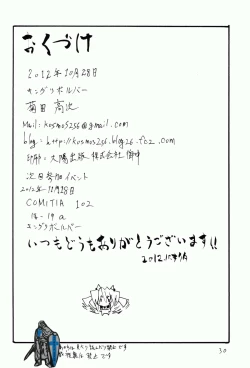 おくづけ
2012年10月28日
キングリボルバー
菊田 高次
Mail: kosmos256@gmail.com
blog: http://kosmos256.blog26.fc2.com
印刷: 太陽出版株式会社 御中
次回参加イベント
2012年11月18日
COMITIA 102
キングリボルバー
いつもどうもありがとうございます!!
30